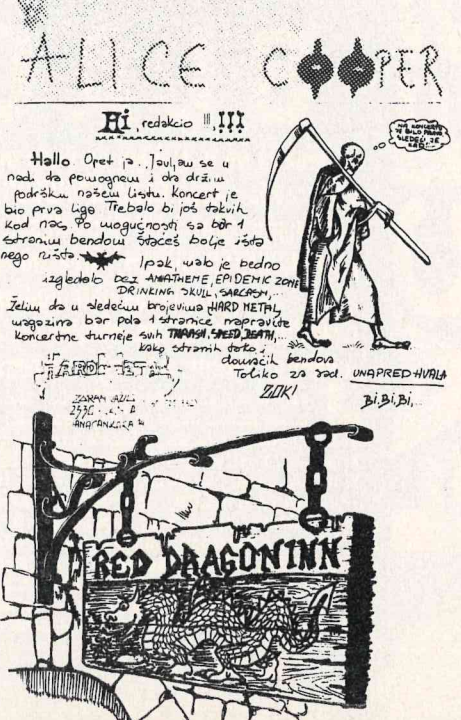 ALICE COOPER
Hi, redakcio !!!, !!!
NA KONCERTU
JE BILO PRAVO
SLEDEĆI JE
KAD!...
Hallo. Opet ja. Javljam se u
nadi da pomognem i da držim
podršku našem listu. Koncert je
bio prva liga. Trebalo bi još takvih
kod nas. Po mogućnosti sa bar 1
stranim bendom štaćeš bolje išta
nego ništa
Ipak, malo je bedno
izgledalo bez ANATHEME, EPIDEMIC ZONE
DRINKING SKULL, SARCASM,...
Želim da u sledećim brojevima HARD METAL
magazina bar pola 1 stranice napravite
koncertne turneje svih THRASH, SPEED, DEATH,...
kako stranih tako i
domaćih bendova
Toliko za sad. UNAPRED-HVALA
ZOKI
Bi, Bi, Bi,...
RED DRAGON INN